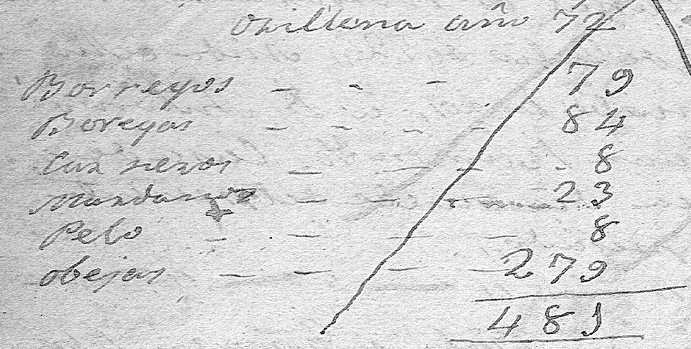 Orillena año 72
Borregos - - - 79
Boregas - - - - 84
Carneros - - - - 8
- - - 23
Pelo - - - - 8
obejas - - - - 279
481